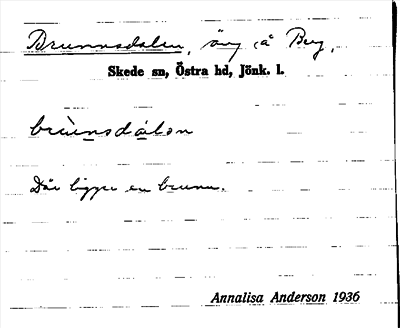 Brunnsdalen, äng å Berg,
Skede sn, Östra hd, Jönk. l.
brùnsdálən
Där ligger en brunn.
Annalisa Anderson 1936